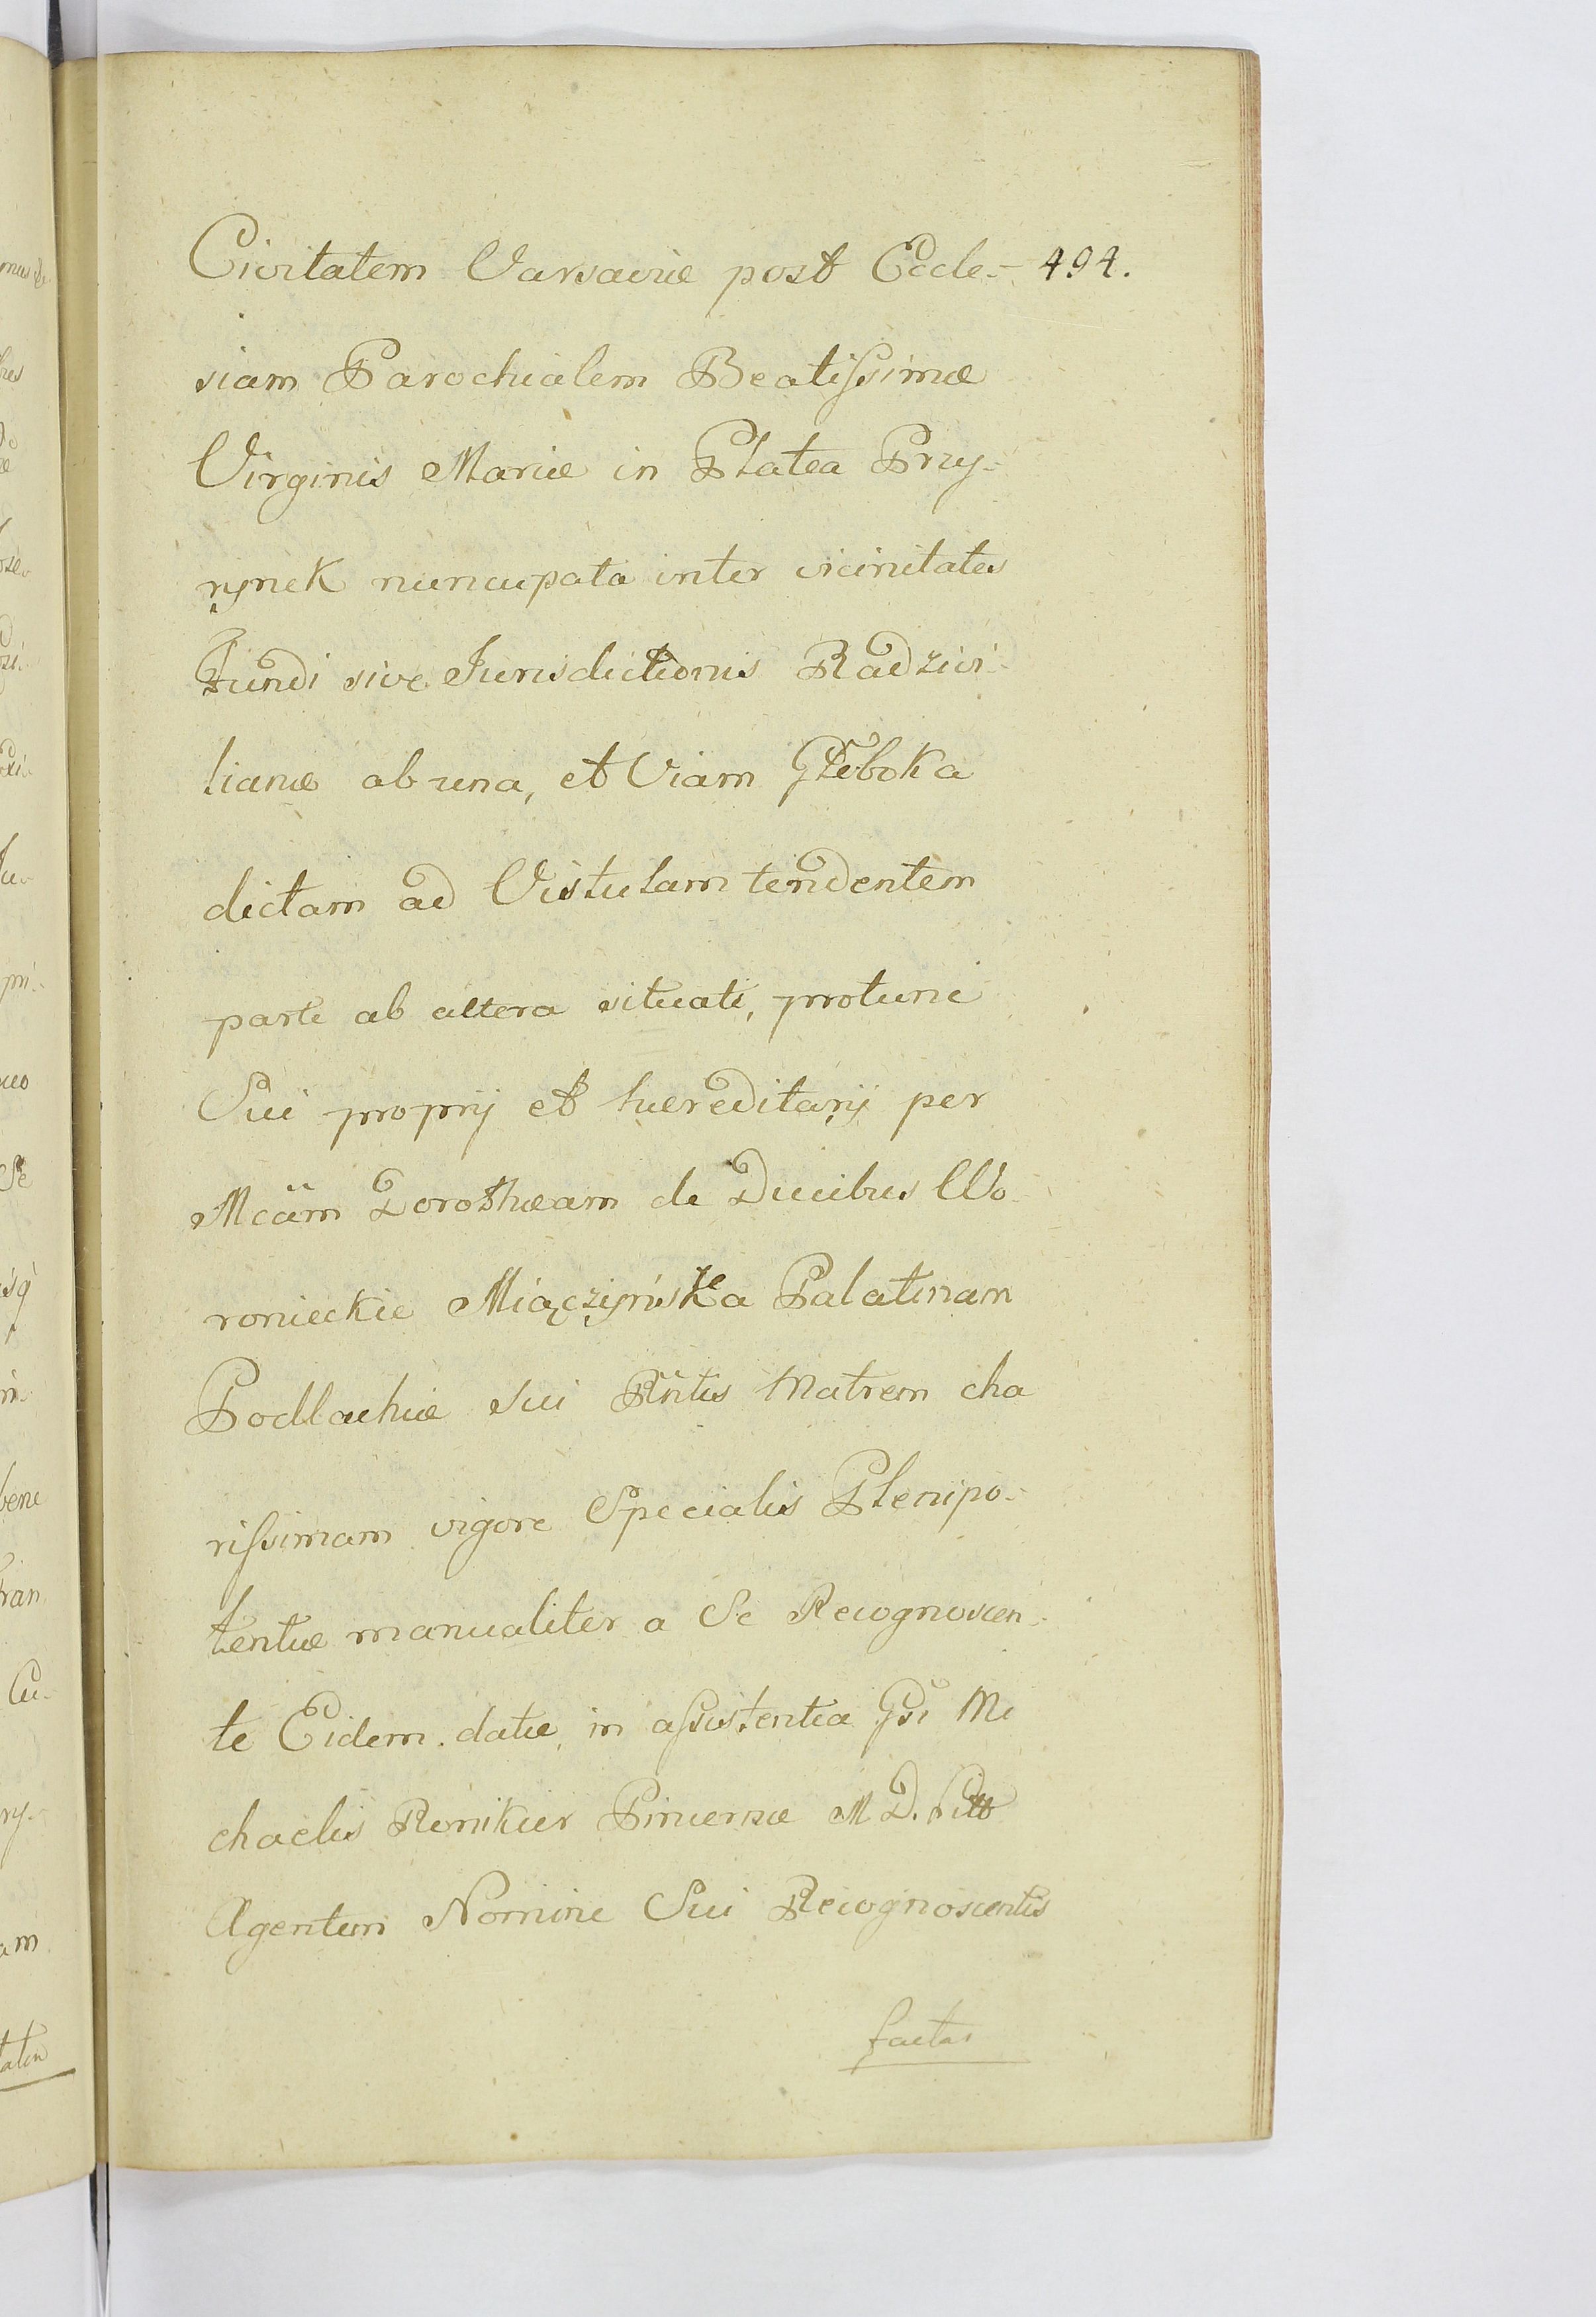 Civitatem Varsaviæ post Eccle- 494.
siam Parochialem Beatissimæ
Virginis Mariæ in Platea Przy-
rynek nuncupata inter vicinitates
Fundi sive Jurisdictionis Radzivi-
lianæ ab una, et Viam Głęboka
dictam ad Vistulam tendentem
parte ab altera situati, protunc
Sui proprij et hæreditarij per
Mcam Dorothæam de Ducibus Wo-
ronieckie Miączyńska Palatinam
Podlachiæ sui Rñtis Matrem cha
rissimam vigore Specialis Plenipo-
tentiæ manualiter a Se Recognoscen-
te Eidem datæ, in assistentia Gsi Mi
chaelis Ronikier Pincernæ M. D. Litt
Agentem Nomine Sui Recognoscentis
factas